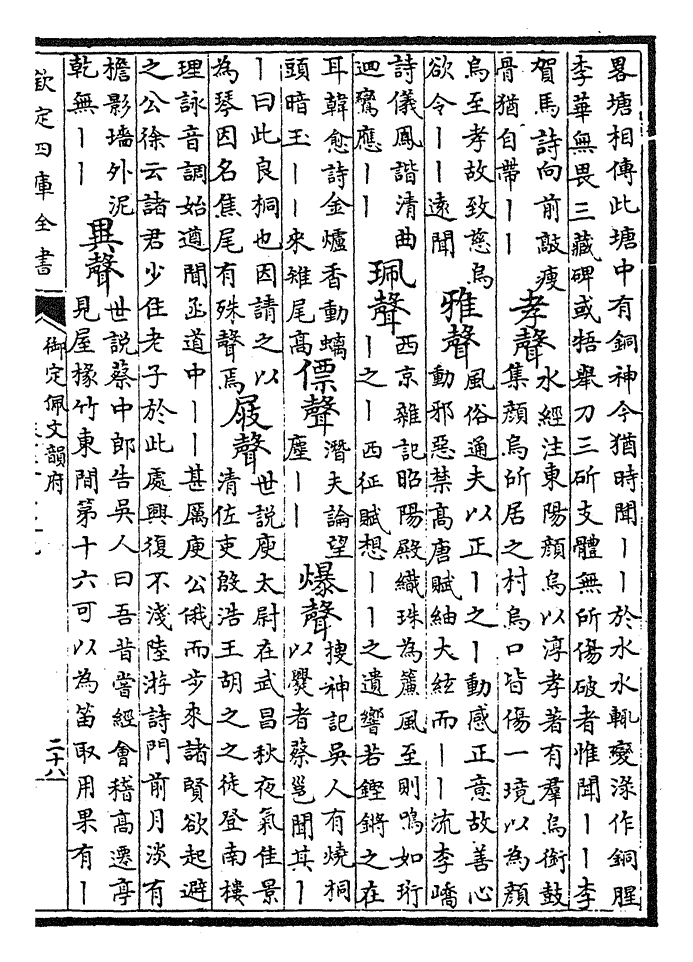 畧塘相傳此塘中有銅神今猶時聞丨丨於水水輙變渌作銅腥
李華無畏三藏碑或捂舉刀三斫支體無所傷破者惟聞丨丨李
賀馬詩向前敲瘦
骨猶自帶丨丨
孝聲
水經注東陽顔烏以淳孝著有羣烏銜鼓
集顔烏所居之村烏口皆傷一境以為顔
烏至孝故致慈烏
欲令丨丨遠聞
雅聲
風俗通夫以正丨之丨動感正意故善心
動邪惡禁高唐賦紬大絃而丨丨流李嶠
詩儀鳳諧清曲
迴鸞應丨丨
珮聲
西京雜記昭陽殿織珠為簾風至則鳴如珩
丨之丨西征賦想丨丨之遺響若鏗鏘之在
耳韓愈詩金爐香動螭
頭暗玉丨丨來雉尾高
僄聲
潛夫論望
塵丨丨
爆聲
搜神記吳人有燒桐
以爨者蔡邕聞其丨
丨曰此良桐也因請之以
為琴因名焦尾有殊聲焉
屐聲
世說庾太尉在武昌秋夜氣佳景
清佐吏殷浩王胡之之徒登南樓
理詠音調始遒聞函道中丨丨甚厲庾公俄而步來諸賢欲起避
之公徐云諸君少住老子於此處興復不淺陸游詩門前月淡有
檐影墻外泥
乾無丨丨
異聲
世說蔡中郎告吳人曰吾昔嘗經會稽高遷亭
見屋椽竹東間第十六可以為笛取用果有丨
欽定四庫全書
御定佩文韻府
二十八